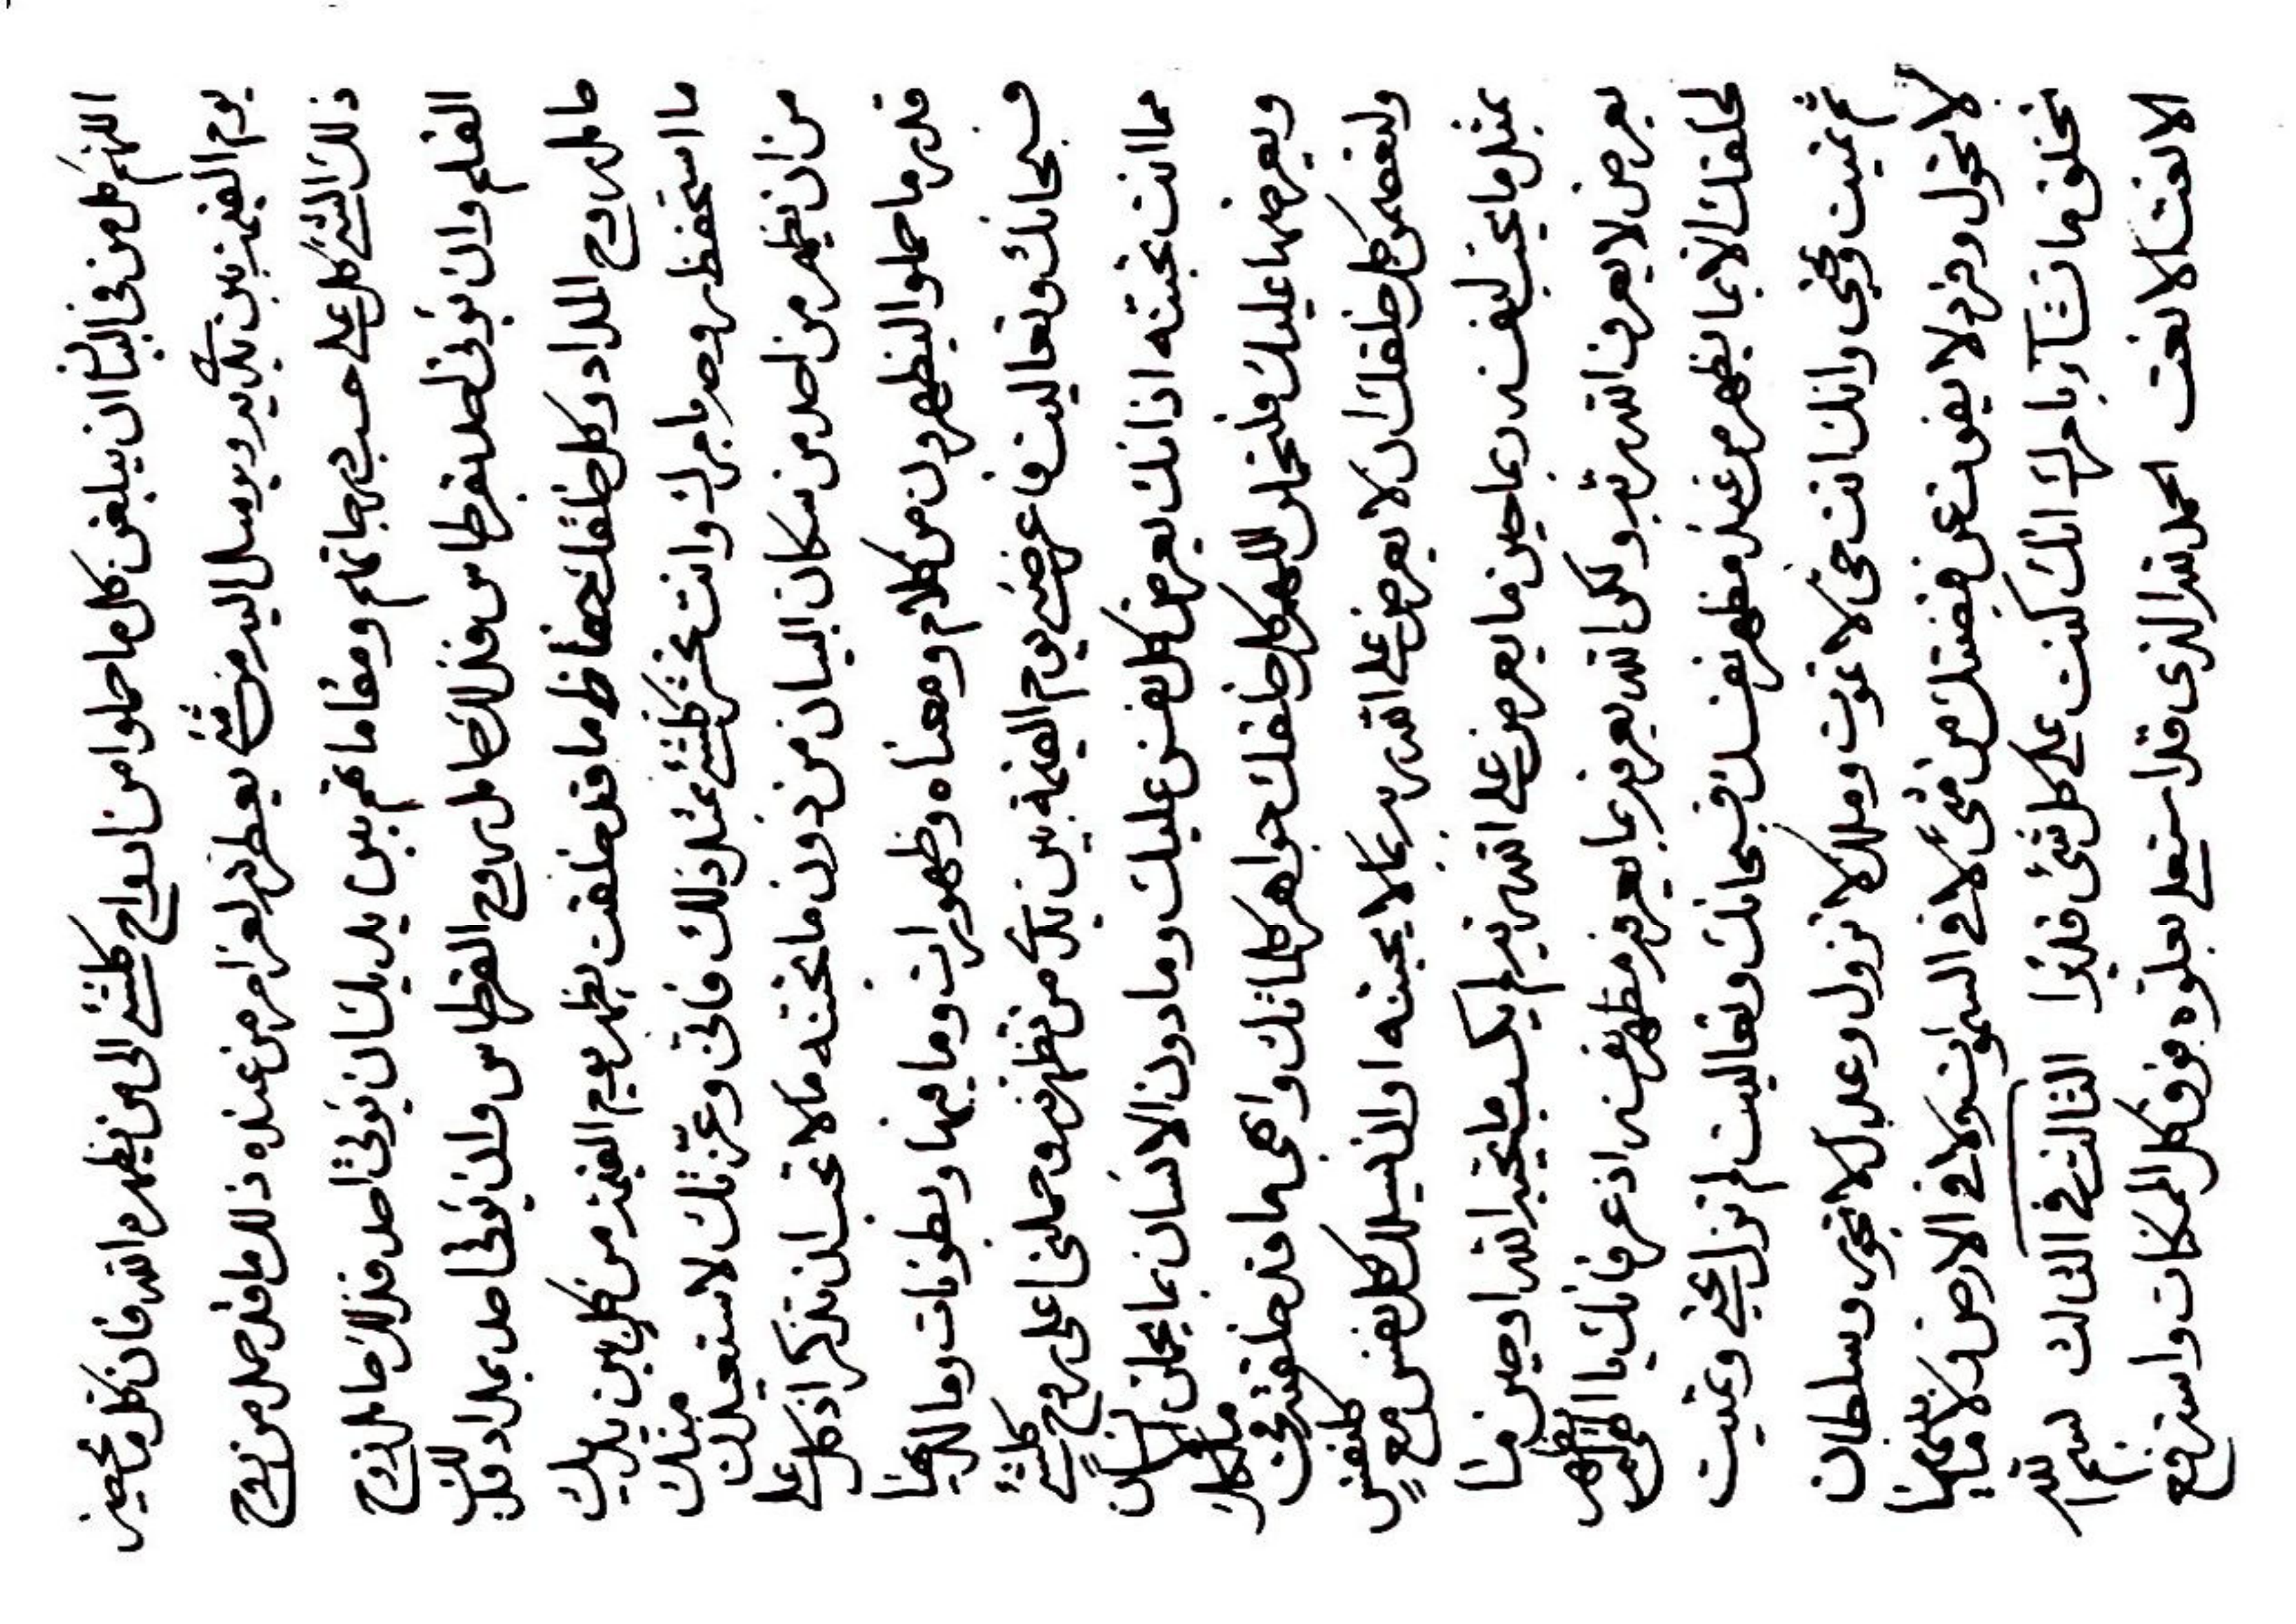 اللهم كل من في البيان ان يبلغن كل ما حملوا من ارواح كلشئ الى من يظهره الله فان كل ما يحضر
يوم القيمة بين يديه ويوسل اليه من شئ يعطر به لعز امر من عنده ذلك ما قد حمل من روح
ذلك الشئ كل على حسب درجاتهم ومقاماتهم بين يديك ان يؤتى احد فذلك حامل روح
القلم وان يؤتى احد بقرطاس فذلك حامل روح القرطاس وان يؤتى احد بمداد فذلك
حامل روح المداد وكل خلقك حفاظ ما قد خلقت يظهر يوم القيمة من كل بين يديك
ما استحفظه وصد بامرك وانت تحشر كلشئ بمثل ذلك فانى وعزتك لاستعيذن بك
من ان يظهر من احد من سكان البيان من دون ما تحبنه ما لا تحب ان تذكر اذ كل على
قدر ما حملوا ليظهرون من كلام ومعناه وظهورات وما فيها وبطونات وما اليها
فسبحانك وتعاليت فاعرضني يوم القيمة بين يدي من تظهرنه وحملني اعلى روح كلشئ
مما انت تحبنه اذ انك يعرض كل نفس عليك وما دون الانسان بما يحملن الانسان
ويعرضها عليك فلتخلون اللهم كل خلقك جواهر كلماتك وابهى ما قد خلقته في ملكك
ولتعصمن كل خلقك ان لا يعرض على الله ربه بما لا يحبنه او ان يسئلك كل نفس مع كل نفس
بمثل ما يحب لنفسه ربما حين ما يعرض على الله ربه لم يك ما يحبه الله او حين ما
يعرض لا يعرف الله ربه ولكن الله يعرفه بما يعرفه مظهر نفسه اذ عرفانك يا الهي لم يظهر
لخلقك الا بما يظهر من عند مظهر نفسك فسبحانك وتعاليت لم تزل تحيي وتميت
ثم تميت وتحيي وانك انت حي لا تموت وملك لا تزول وعدل لا تجور وسلطان
لا تحول وفرد لا يفوت عن قبضتك من شئ لا في السموات ولا في الارض ولا ما بينهما
تخلق ما تشآء بامرك انك كنت على كل شئ قديرا الثالث في الثالث بسم الله
الامنع الامنع الحمد لله الذي قد استعلى بعلوه فوق كل الممكنات واسترفع